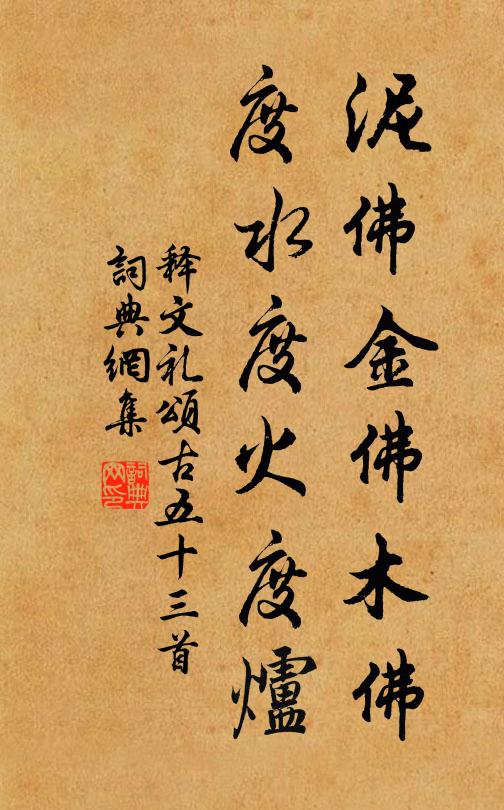 泥佛金佛木佛
度水度火度爐
释文礼頌古五十三首
詞典網集
詞典网印